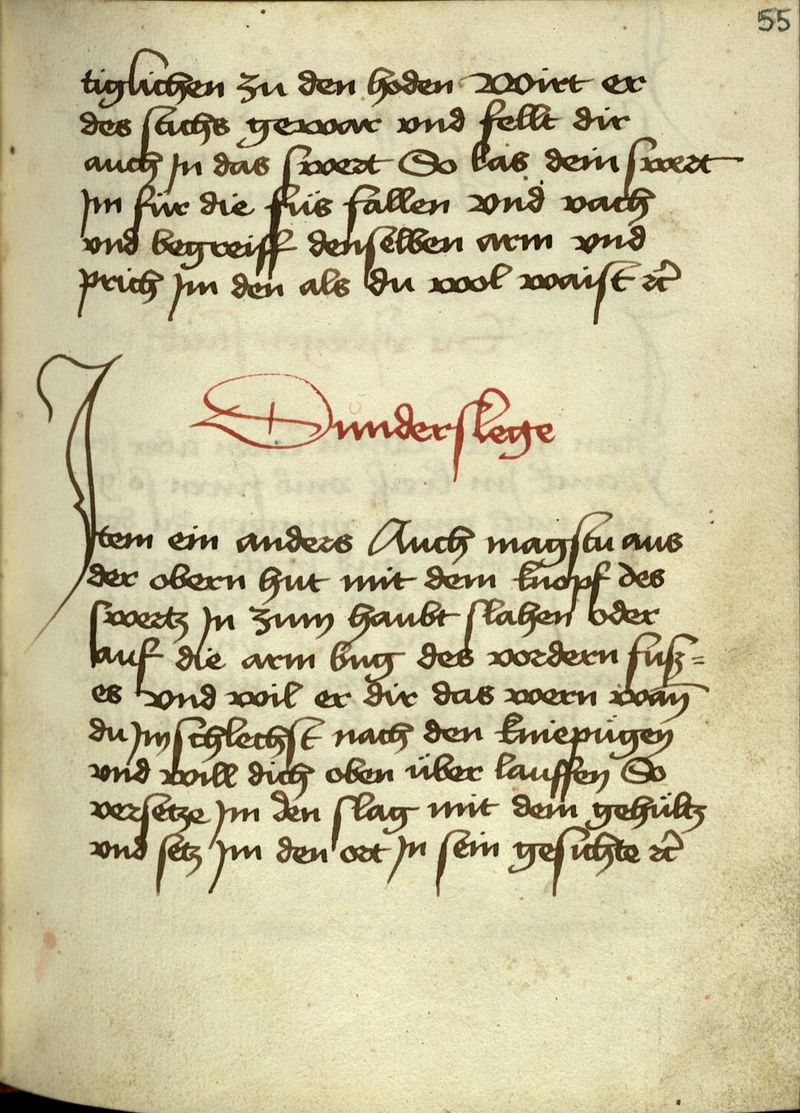 55
tiglichen zu den hoden Wirt er
des stichs gewar vnd fellt dir
auch In das swert So las dein swert
Im für die füs fallen vnd vach
vnd begreiff denselben arm vnd
prich Im den als du wol waist rc̄
Dunnderslege
Item ein anders Auch magstu aus
der obern hut mit dem knopf des
swertz In zum haubt slahen oder
auf die arm bug des vordern fuß=
es vnd wil er dir das wern wan̄
du Im schlechst nach den kniepügen
vnd will dich oben über lauffen So
versetze Im den slag mit dem gehültz
vnd setz Im den ort In sein gesichte rc̄